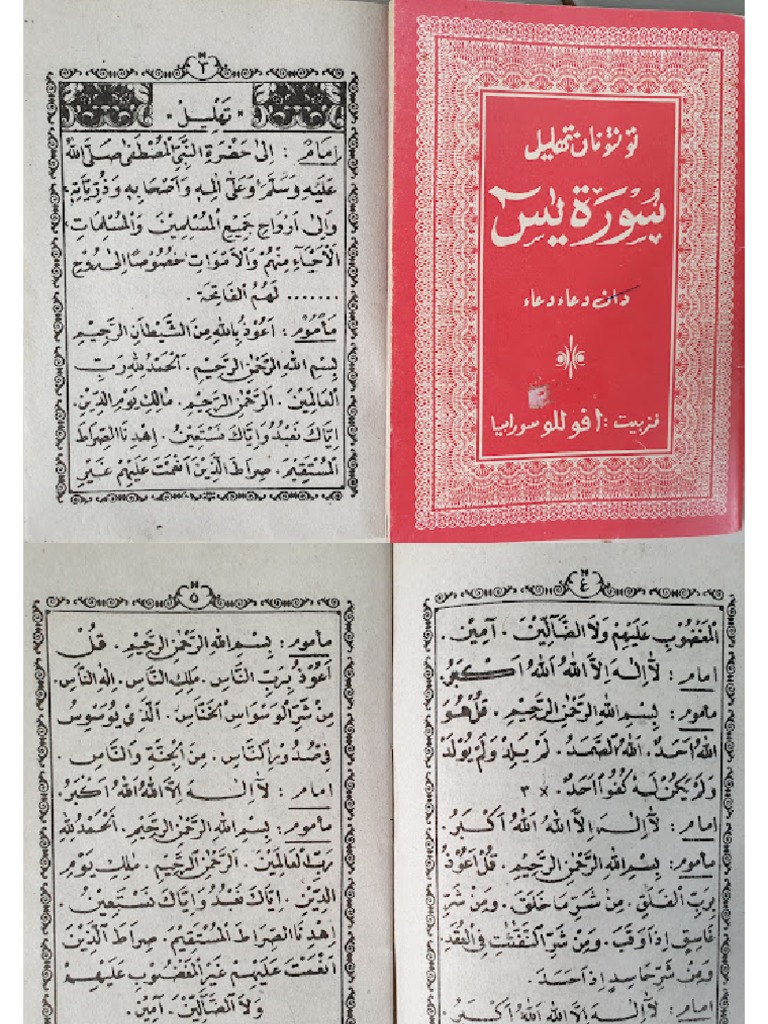 تونتونان تهليل
سُوْرَة يٰسٓ
دان دعاء دعاء
فربيت : افوللو سورابيا
٣
« تَهْلِيْل »
إِمَامْ : اِلىٰ حَضْرَةِ النَّبِيِّ الْمُصْطَفٰى صَلَّى اللهُ
عَلَيْهِ وَسَلَّمَ وَعَلٰى اٰلِهِ وَاَصْحَابِهِ وَذُرِّيَّاتِهِ،
وَاِلىٰ اَرْوَاحِ جَمِيْعِ الْمُسْلِمِيْنَ وَالْمُسْلِمَاتِ،
الْاَحْيَاءِ مِنْهُمْ وَالْاَمْوَاتِ خُصُوْصًا اِلىٰ رُوْحِ
....... لَهُمُ الْفَاتِحَةَ .
مَأْمُوْمْ : اَعُوْذُ بِاللهِ مِنَ الشَّيْطَانِ الرَّجِيْمِ
بِسْمِ اللهِ الرَّحْمٰنِ الرَّحِيْمِ . اَلْحَمْدُ لِلّٰهِ رَبِّ
الْعَالَمِيْنَ . اَلرَّحْمٰنِ الرَّحِيْمِ . مَالِكِ يَوْمِ الدِّيْنِ.
اِيَّاكَ نَعْبُدُ وَاِيَّاكَ نَسْتَعِيْنُ . اِهْدِنَا الصِّرَاطَ
الْمُسْتَقِيْمَ . صِرَاطَ الَّذِيْنَ اَنْعَمْتَ عَلَيْهِمْ غَيْرِ
٤
الْمَغْضُوْبِ عَلَيْهِمْ وَلَا الضَّالِّيْنَ . آمِيْنَ .
إمام : لَآ اِلٰهَ اِلَّا اللهُ اَللهُ اَكْبَرُ.
مأموم : بِسْمِ اللهِ الرَّحْمٰنِ الرَّحِيْمِ . قُلْ هُوَ
اللهُ اَحَدٌ . اَللهُ الصَّمَدُ . لَمْ يَلِدْ وَلَمْ يُوْلَدْ
وَلَمْ يَكُنْ لَهُ كُفُوًا اَحَدٌ . × ٣
إمام : لَآ اِلٰهَ اِلَّا اللهُ اَللهُ اَكْبَرُ .
مأموم : بِسْمِ اللهِ الرَّحْمٰنِ الرَّحِيْمِ . قُلْ اَعُوْذُ
بِرَبِّ الْفَلَقِ . مِنْ شَرِّ مَا خَلَقَ . وَمِنْ شَرِّ
غَاسِقٍ اِذَا وَقَبَ . وَمِنْ شَرِّ النَّفّٰثٰتِ فِى الْعُقَدِ
وَمِنْ شَرِّ حَاسِدٍ اِذَا حَسَدَ .
إمام : لَآ اِلٰهَ اِلَّا اللهُ اَللهُ اَكْبَرُ .
٥
مأموم : بِسْمِ اللهِ الرَّحْمٰنِ الرَّحِيْمِ . قُلْ
اَعُوْذُ بِرَبِّ النَّاسِ . مَلِكِ النَّاسِ . اِلٰهِ النَّاسِ .
مِنْ شَرِّ الْوَسْوَاسِ الْخَنَّاسِ . اَلَّذِيْ يُوَسْوِسُ
فِى صُدُوْرِ النَّاسِ . مِنَ الْجِنَّةِ وَالنَّاسِ .
إمام : لَآ اِلٰهَ اِلَّا اللهُ اَللهُ اَكْبَرُ .
مأموم : بِسْمِ اللهِ الرَّحْمٰنِ الرَّحِيْمِ . اَلْحَمْدُ لِلّٰهِ
رَبِّ الْعَالَمِيْنَ . اَلرَّحْمٰنِ الرَّحِيْمِ . مٰلِكِ يَوْمِ
الدِّيْنِ . اِيَّاكَ نَعْبُدُ وَاِيَّاكَ نَسْتَعِيْنُ .
اِهْدِنَا الصِّرَاطَ الْمُسْتَقِيْمَ . صِرَاطَ الَّذِيْنَ
اَنْعَمْتَ عَلَيْهِمْ غَيْرِ الْمَغْضُوْبِ عَلَيْهِمْ
وَلَا الضَّالِّيْنَ . آمِيْنَ .